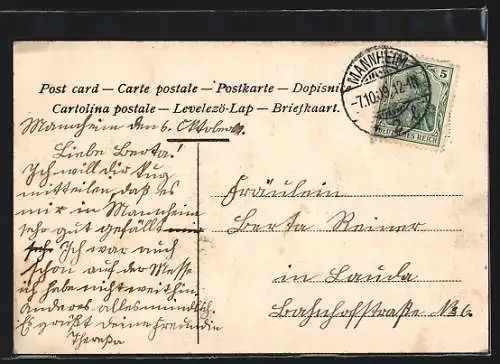 Post card — Carte postale — Postkarte — Dopisnic
Cartolina postale — Levelezö-Lap — Briefkaart.
MANNHEIM
-7.10.09.12-1N.
5
DEUTSCHES REICH
Mannheim den 6. Oktober
Liebe Berta!
Ich will dir
mitteilen, daß es
mir in Mannheim
sehr gut gefällt
Ich war auch
schon auf der Messe
ich habe nicht weit hin
Anderes alles mündlich.
Es grüßt deine Freundin
Theresa
Fräulein
Berta Reiner
in Lauda
Bahnhofstraße No 6.